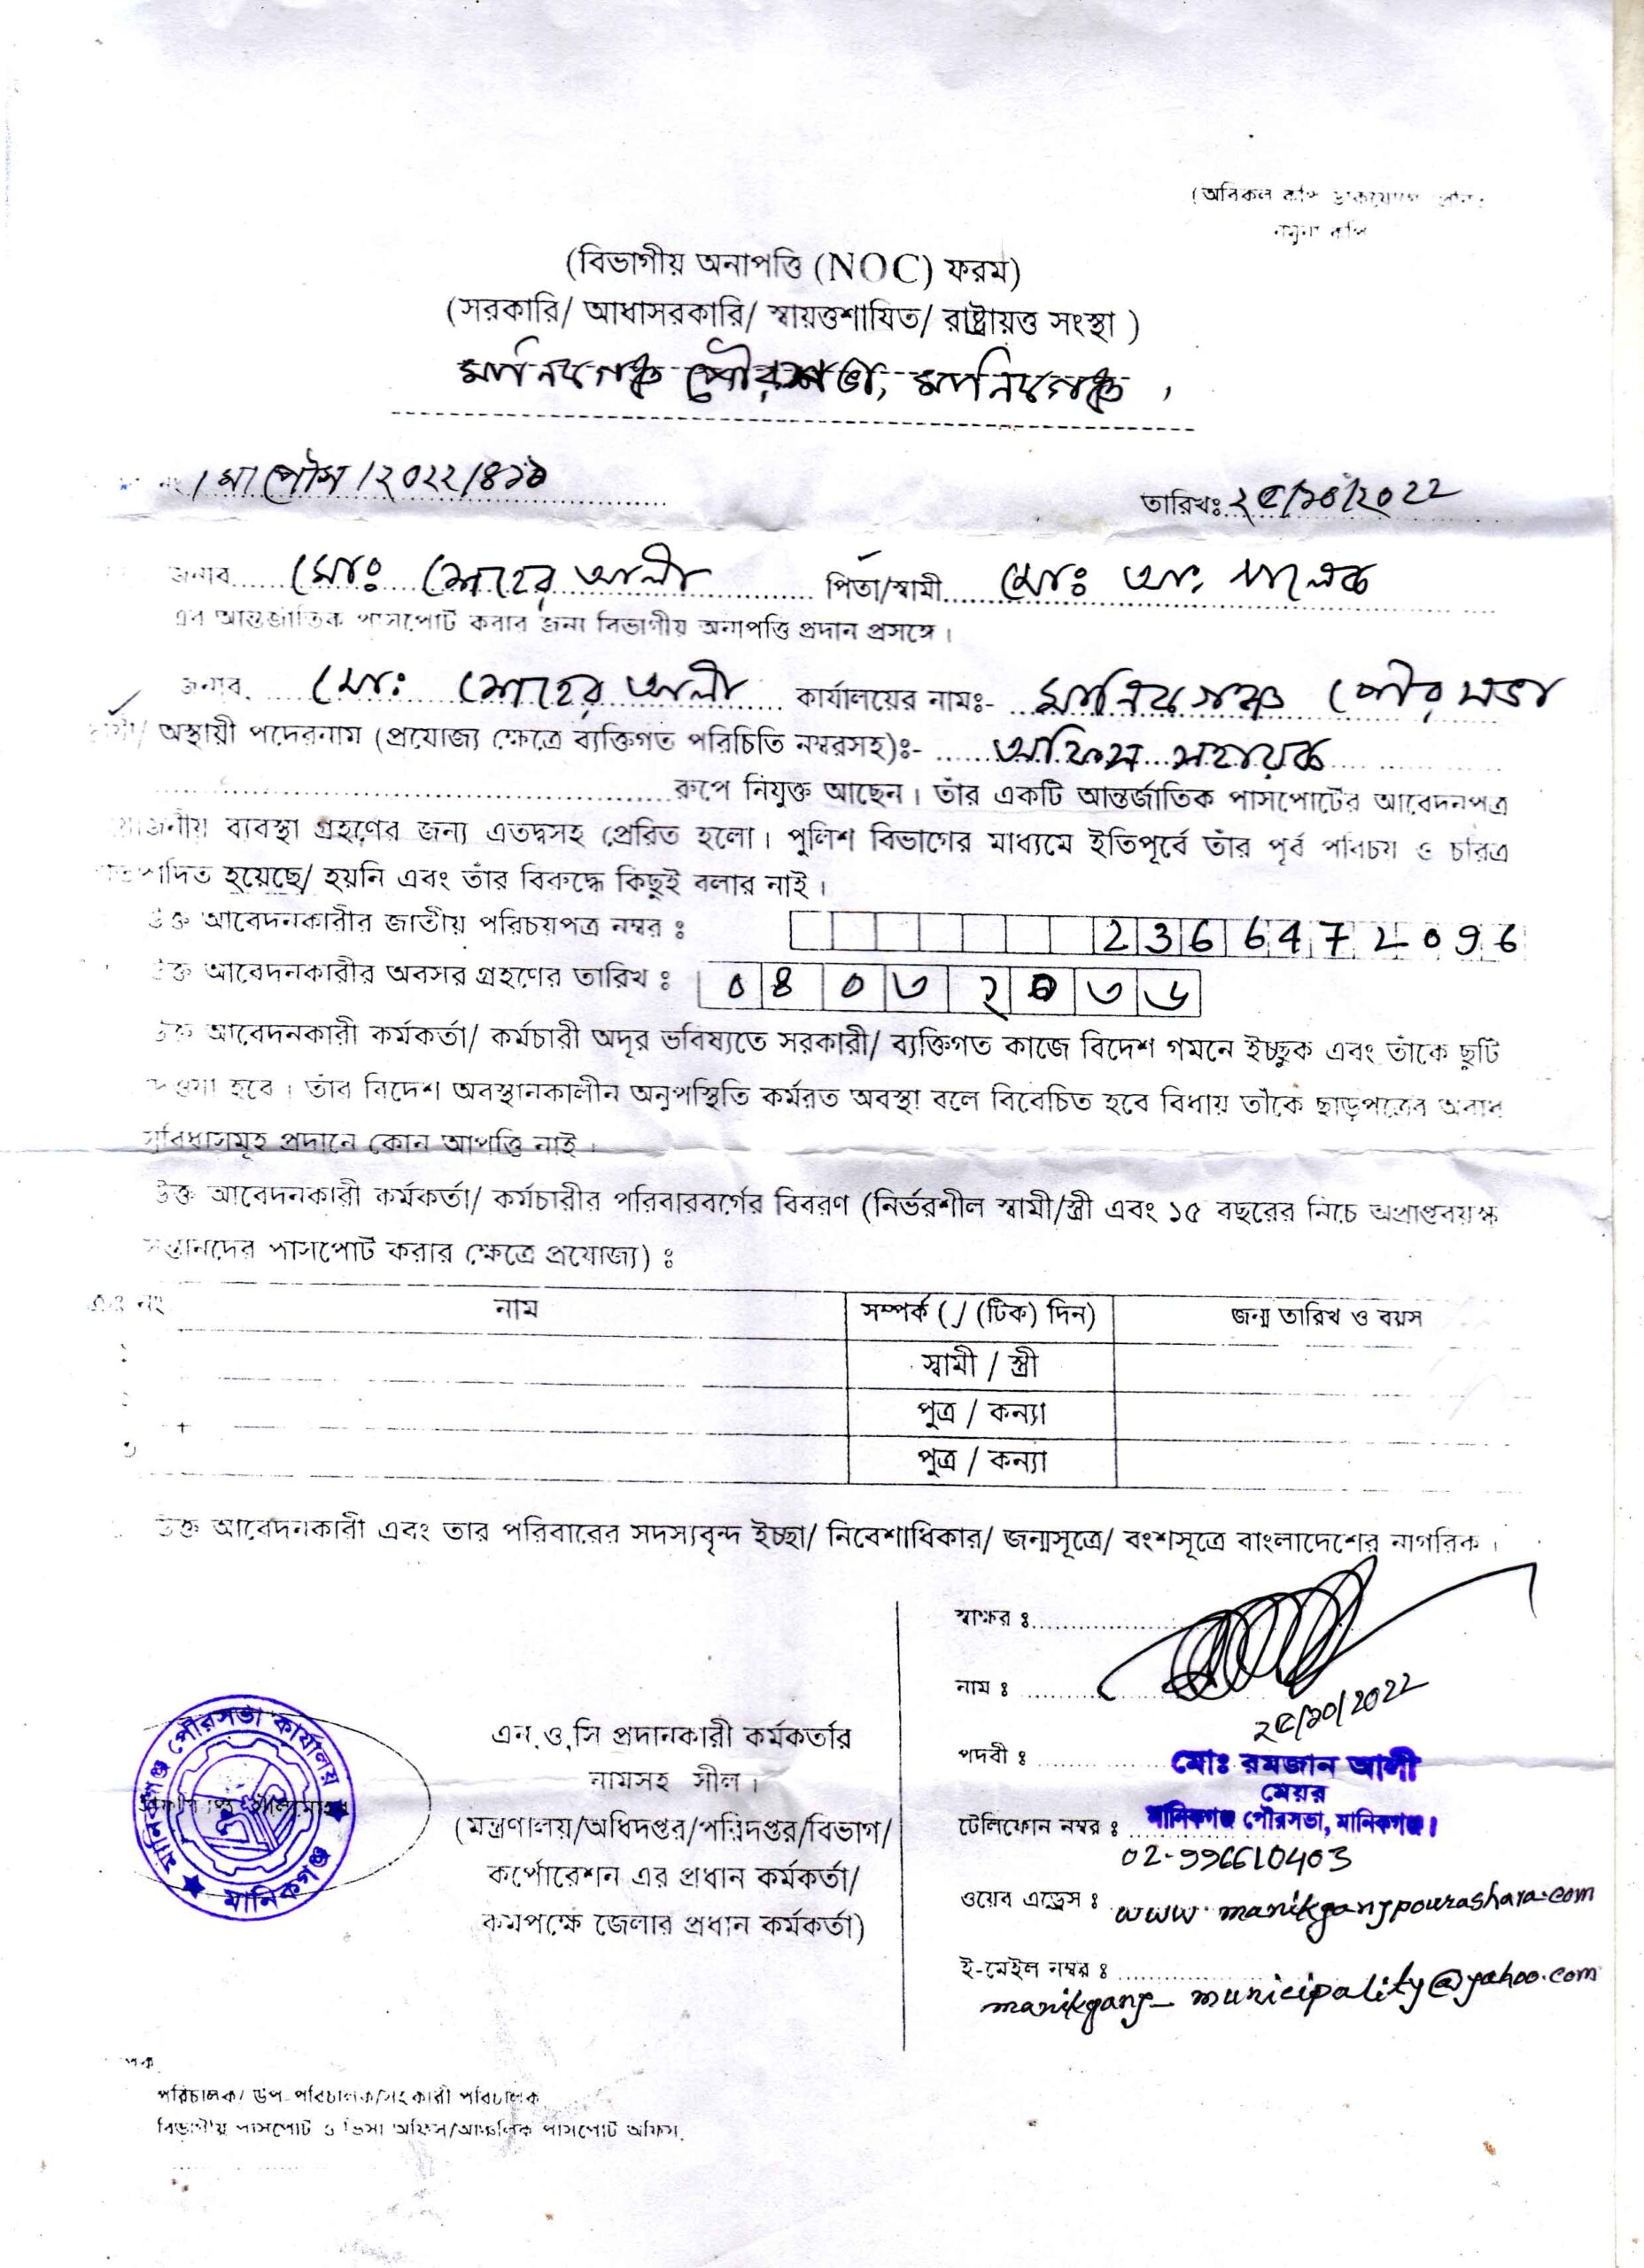 (অবিকল কপি
নমুনা কপি
(বিভাগীয় অনাপত্তি (NOC) ফরম)
(সরকারি/ আধাসরকারি/ স্বায়ত্তশায়িত/ রাষ্ট্রায়ত্ত সংস্থা )
মানিকগঞ্জ পৌরসভা, মানিকগঞ্জ ,
নং /মাপৌস/২০২২/৪১৯
তারিখঃ ২৫/১০/২০২২
জনাব মোঃ শাহের আলী পিতা/স্বামী মোঃ আঃ মালেক
এর আন্তর্জাতিক পাসপোর্ট করার জন্য বিভাগীয় অনাপত্তি প্রদান প্রসঙ্গে।
জনাব মোঃ শাহের আলী কার্যালয়ের নামঃ- মানিকগঞ্জ পৌরসভা
স্থায়ী/ অস্থায়ী পদেরনাম (প্রযোজ্য ক্ষেত্রে ব্যক্তিগত পরিচিতি নম্বরসহ)ঃ- অফিস সহায়ক
রুপে নিযুক্ত আছেন। তাঁর একটি আন্তর্জাতিক পাসপোর্টের আবেদনপত্র
প্রয়োজনীয় ব্যবস্থা গ্রহণের জন্য এতদ্বসহ প্রেরিত হলো। পুলিশ বিভাগের মাধ্যমে ইতিপূর্বে তাঁর পূর্ব পরিচয় ও চরিত্র
প্রতিপাদিত হয়েছে/ হয়নি এবং তাঁর বিরুদ্ধে কিছুই বলার নাই।
উক্ত আবেদনকারীর জাতীয় পরিচয়পত্র নম্বর ঃ 2366472096
উক্ত আবেদনকারীর অবসর গ্রহণের তারিখ ঃ ০৪০৩২০৩৬
উক্ত আবেদনকারী কর্মকর্তা/ কর্মচারী অদূর ভবিষ্যতে সরকারী/ ব্যক্তিগত কাজে বিদেশ গমনে ইচ্ছুক এবং তাঁকে ছুটি
দেওয়া হবে। তাঁর বিদেশ অবস্থানকালীন অনুপস্থিতি কর্মরত অবস্থা বলে বিবেচিত হবে বিধায় তাঁকে ছাড়পত্রের অবাধ
সুবিধাসমূহ প্রদানে কোন আপত্তি নাই।
উক্ত আবেদনকারী কর্মকর্তা/ কর্মচারীর পরিবারবর্গের বিবরণ (নির্ভরশীল স্বামী/স্ত্রী এবং ১৫ বছরের নিচে অপ্রাপ্তবয়স্ক
সন্তানদের পাসপোর্ট করার ক্ষেত্রে প্রযোজ্য) ঃ
নং নাম সম্পর্ক (√ (টিক) দিন) জন্ম তারিখ ও বয়স
স্বামী / স্ত্রী
পুত্র / কন্যা
পুত্র / কন্যা
উক্ত আবেদনকারী এবং তার পরিবারের সদস্যবৃন্দ ইচ্ছা/ নিবেশাধিকার/ জন্মসূত্রে/ বংশসূত্রে বাংলাদেশের নাগরিক।
স্বাক্ষর ঃ
নাম ঃ
২৫/১০/২০২২
পদবী ঃ
মোঃ রমজান আলী
মেয়র
মানিকগঞ্জ পৌরসভা, মানিকগঞ্জ।
টেলিফোন নম্বর ঃ
02-996610403
ওয়েব এড্রেস ঃ www.manikganjpourashava.com
ই-মেইল নম্বর ঃ
manikganj_municipality@yahoo.com
মানিকগঞ্জ পৌরসভা কার্যালয়
মানিকগঞ্জ
এন.ও.সি প্রদানকারী কর্মকর্তার
নামসহ সীল।
(মন্ত্রণালয়/অধিদপ্তর/পরিদপ্তর/বিভাগ/
কর্পোরেশন এর প্রধান কর্মকর্তা/
কমপক্ষে জেলার প্রধান কর্মকর্তা)
পরিচালক/ উপ-পরিচালক/সহকারী পরিচালক
বিভাগীয় পাসপোর্ট ও ভিসা অফিস/আঞ্চলিক পাসপোর্ট অফিস,